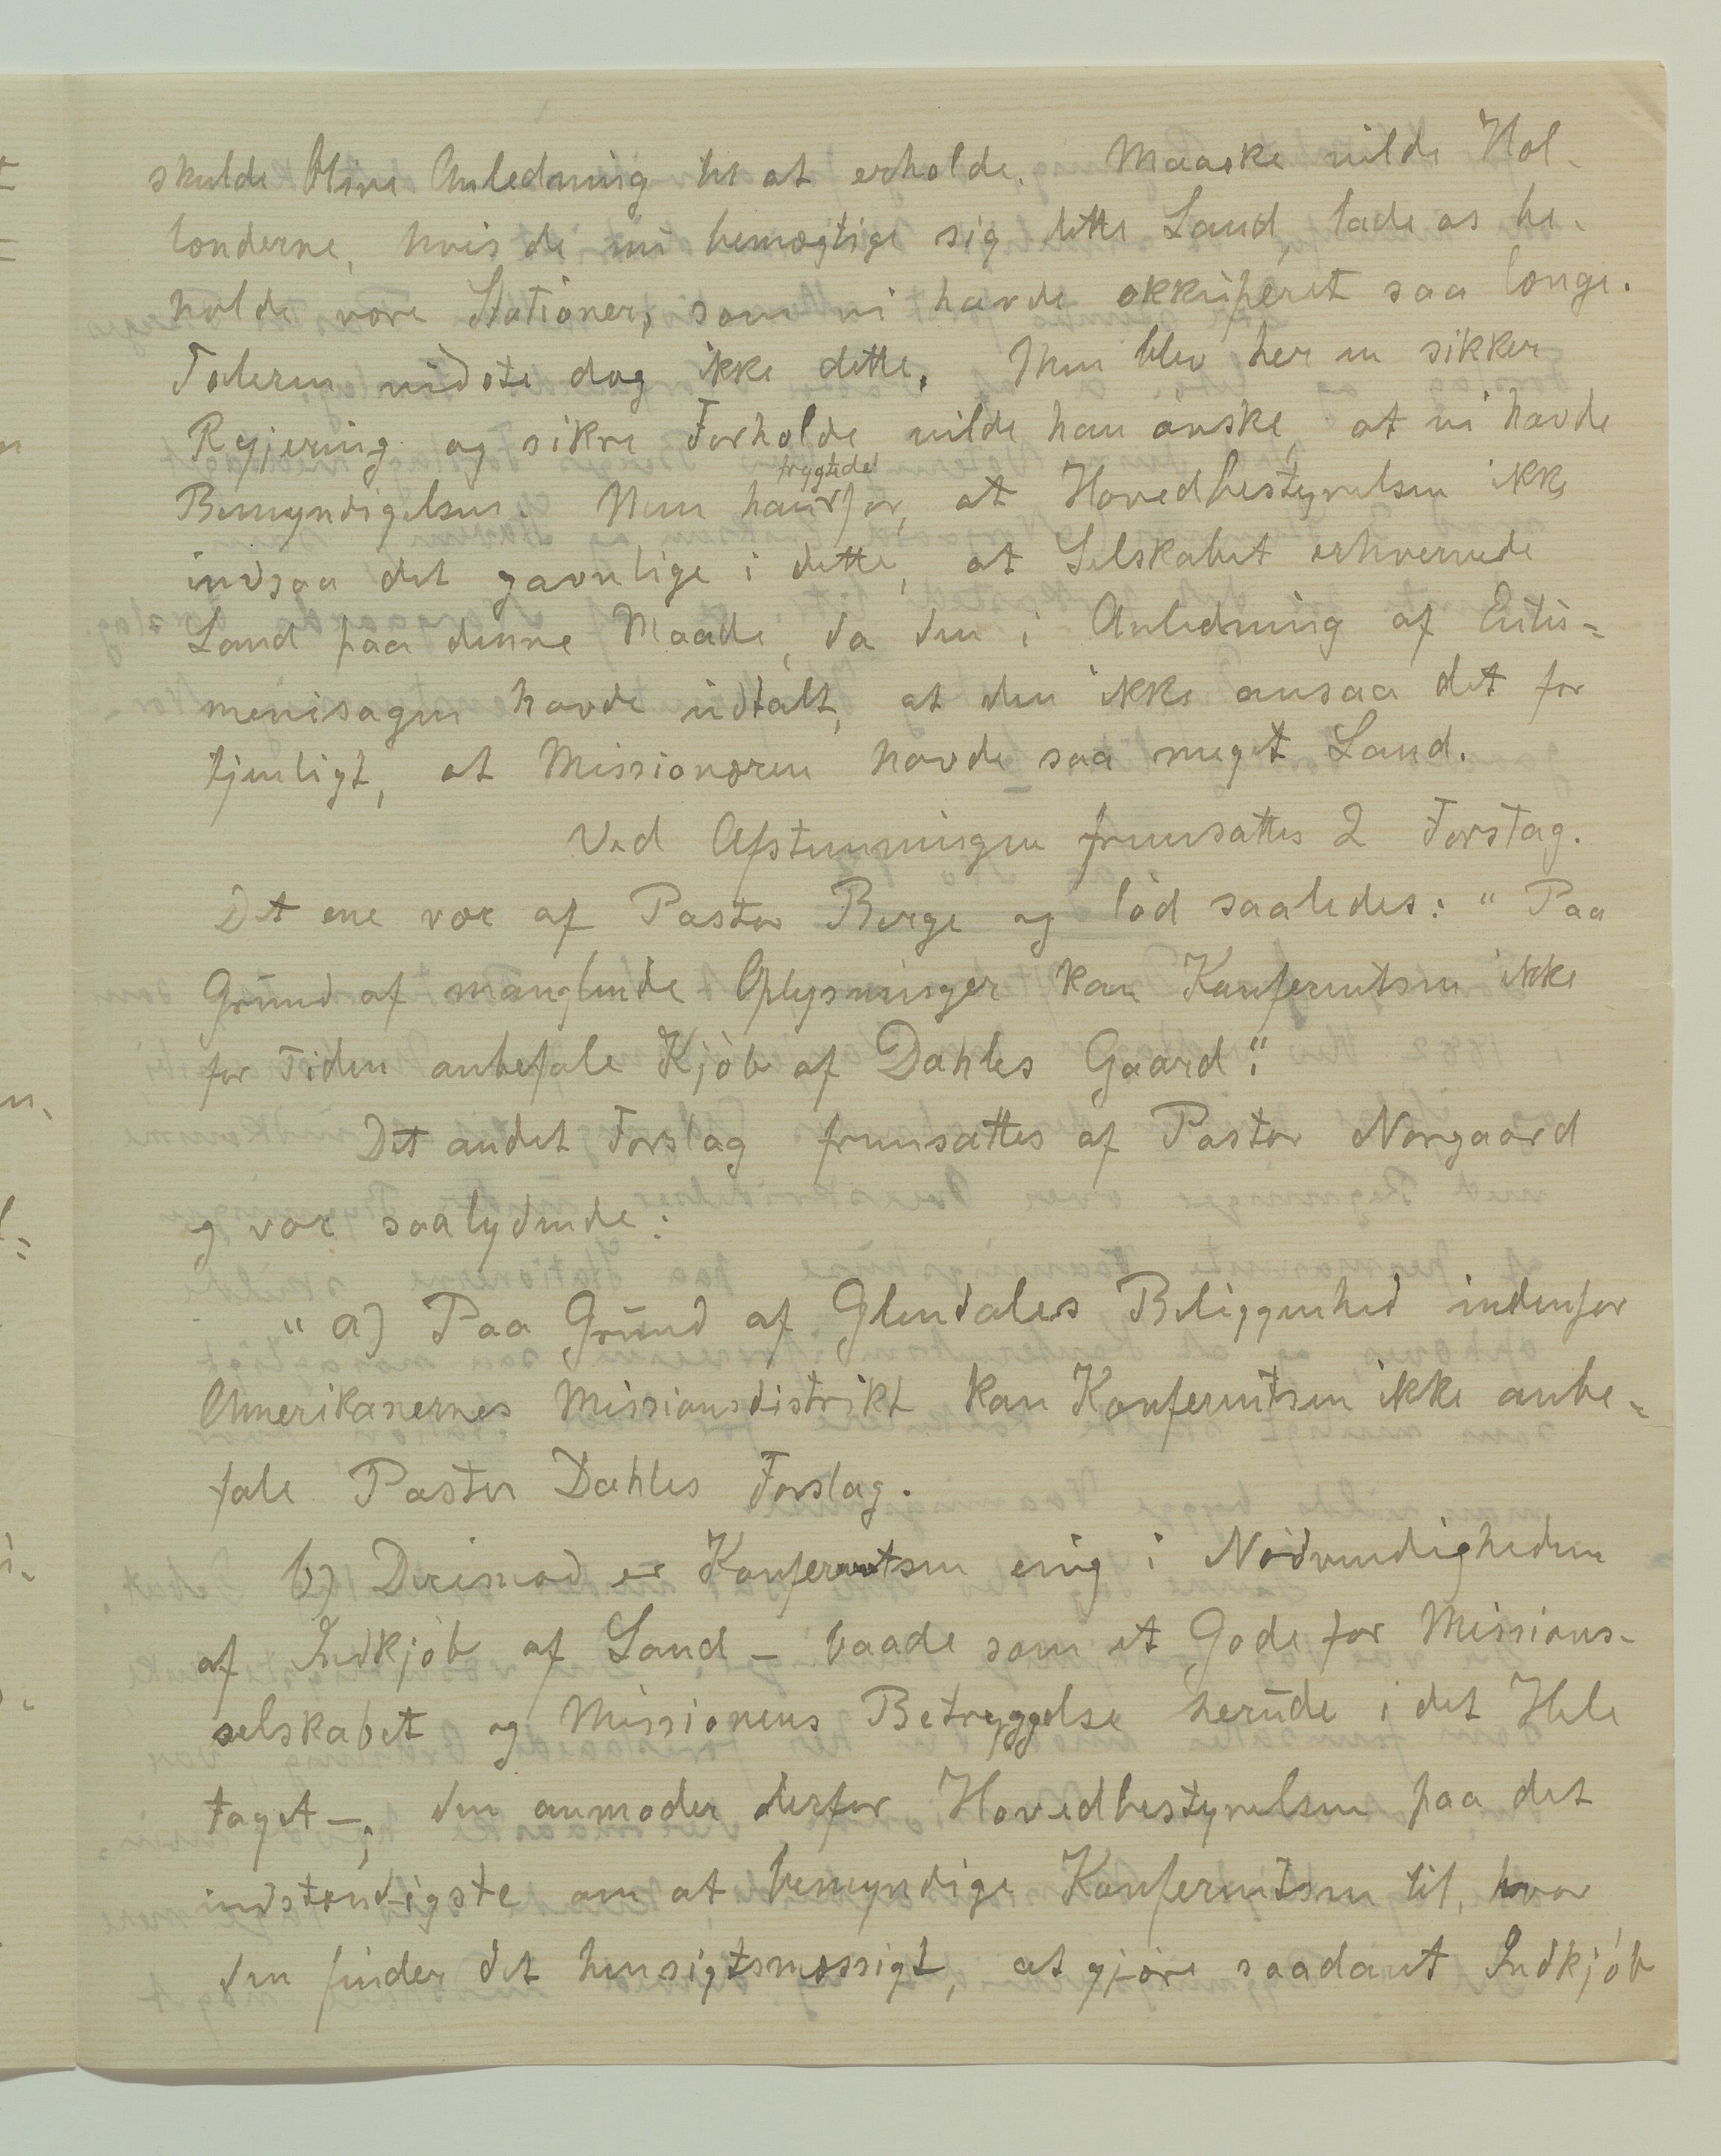 skulde blive Anledning til at erholde. Maaske vilde Hol-
lænderne, hvis de nu bemægtige sig dette Land, lade os be-
holde vore Stationer, som vi havde okkuperet saa længe.
Taleren vidste dog ikke dette. Men blev her en sikker
Regjering og sikre Forholde vilde han ønske, at vi havde
Bemyndigelsen. Men han frygtede for, at Hovedbestyrelsen ikke
indsaa det gavnlige i dette, at Selskabet erhvervede
Land paa denne Maade, da den i Anledning af Entu-
menisagen havde udtalt, at den ikke ansaa det for
tjenligt, at Missionæren havde saa meget Land.
Ved Afstemningen fremsattes 2 Forslag.
Det ene var af Pastor Berge og lød saaledes: "Paa
Grund af manglende Oplysninger kan Konferentsen ikke
for Tiden anbefale Kjøb af Dahles Gaard".
Det andet Forslag fremsattes af Pastor Norgaard
og var saalydende:
"a) Paa Grund af Glendales Beliggenhed indenfor
Amerikanernes Missionsdistrikt kan Konferentsen ikke anbe-
fale Pastor Dahles Forslag.
b) Derimod er Konferentsen enig i Nødvendigheden
af Indkjøb af Land – baade som et Gode for Missions-
selskabet og Missionens Betryggelse herude i det Hele
taget –; den anmoder derfor Hovedbestyrelsen paa det
indstændigste om at bemyndige Konferentsen til, hvor
den finder det hensigtsmæssigt, at gjøre saadant Indkjøb